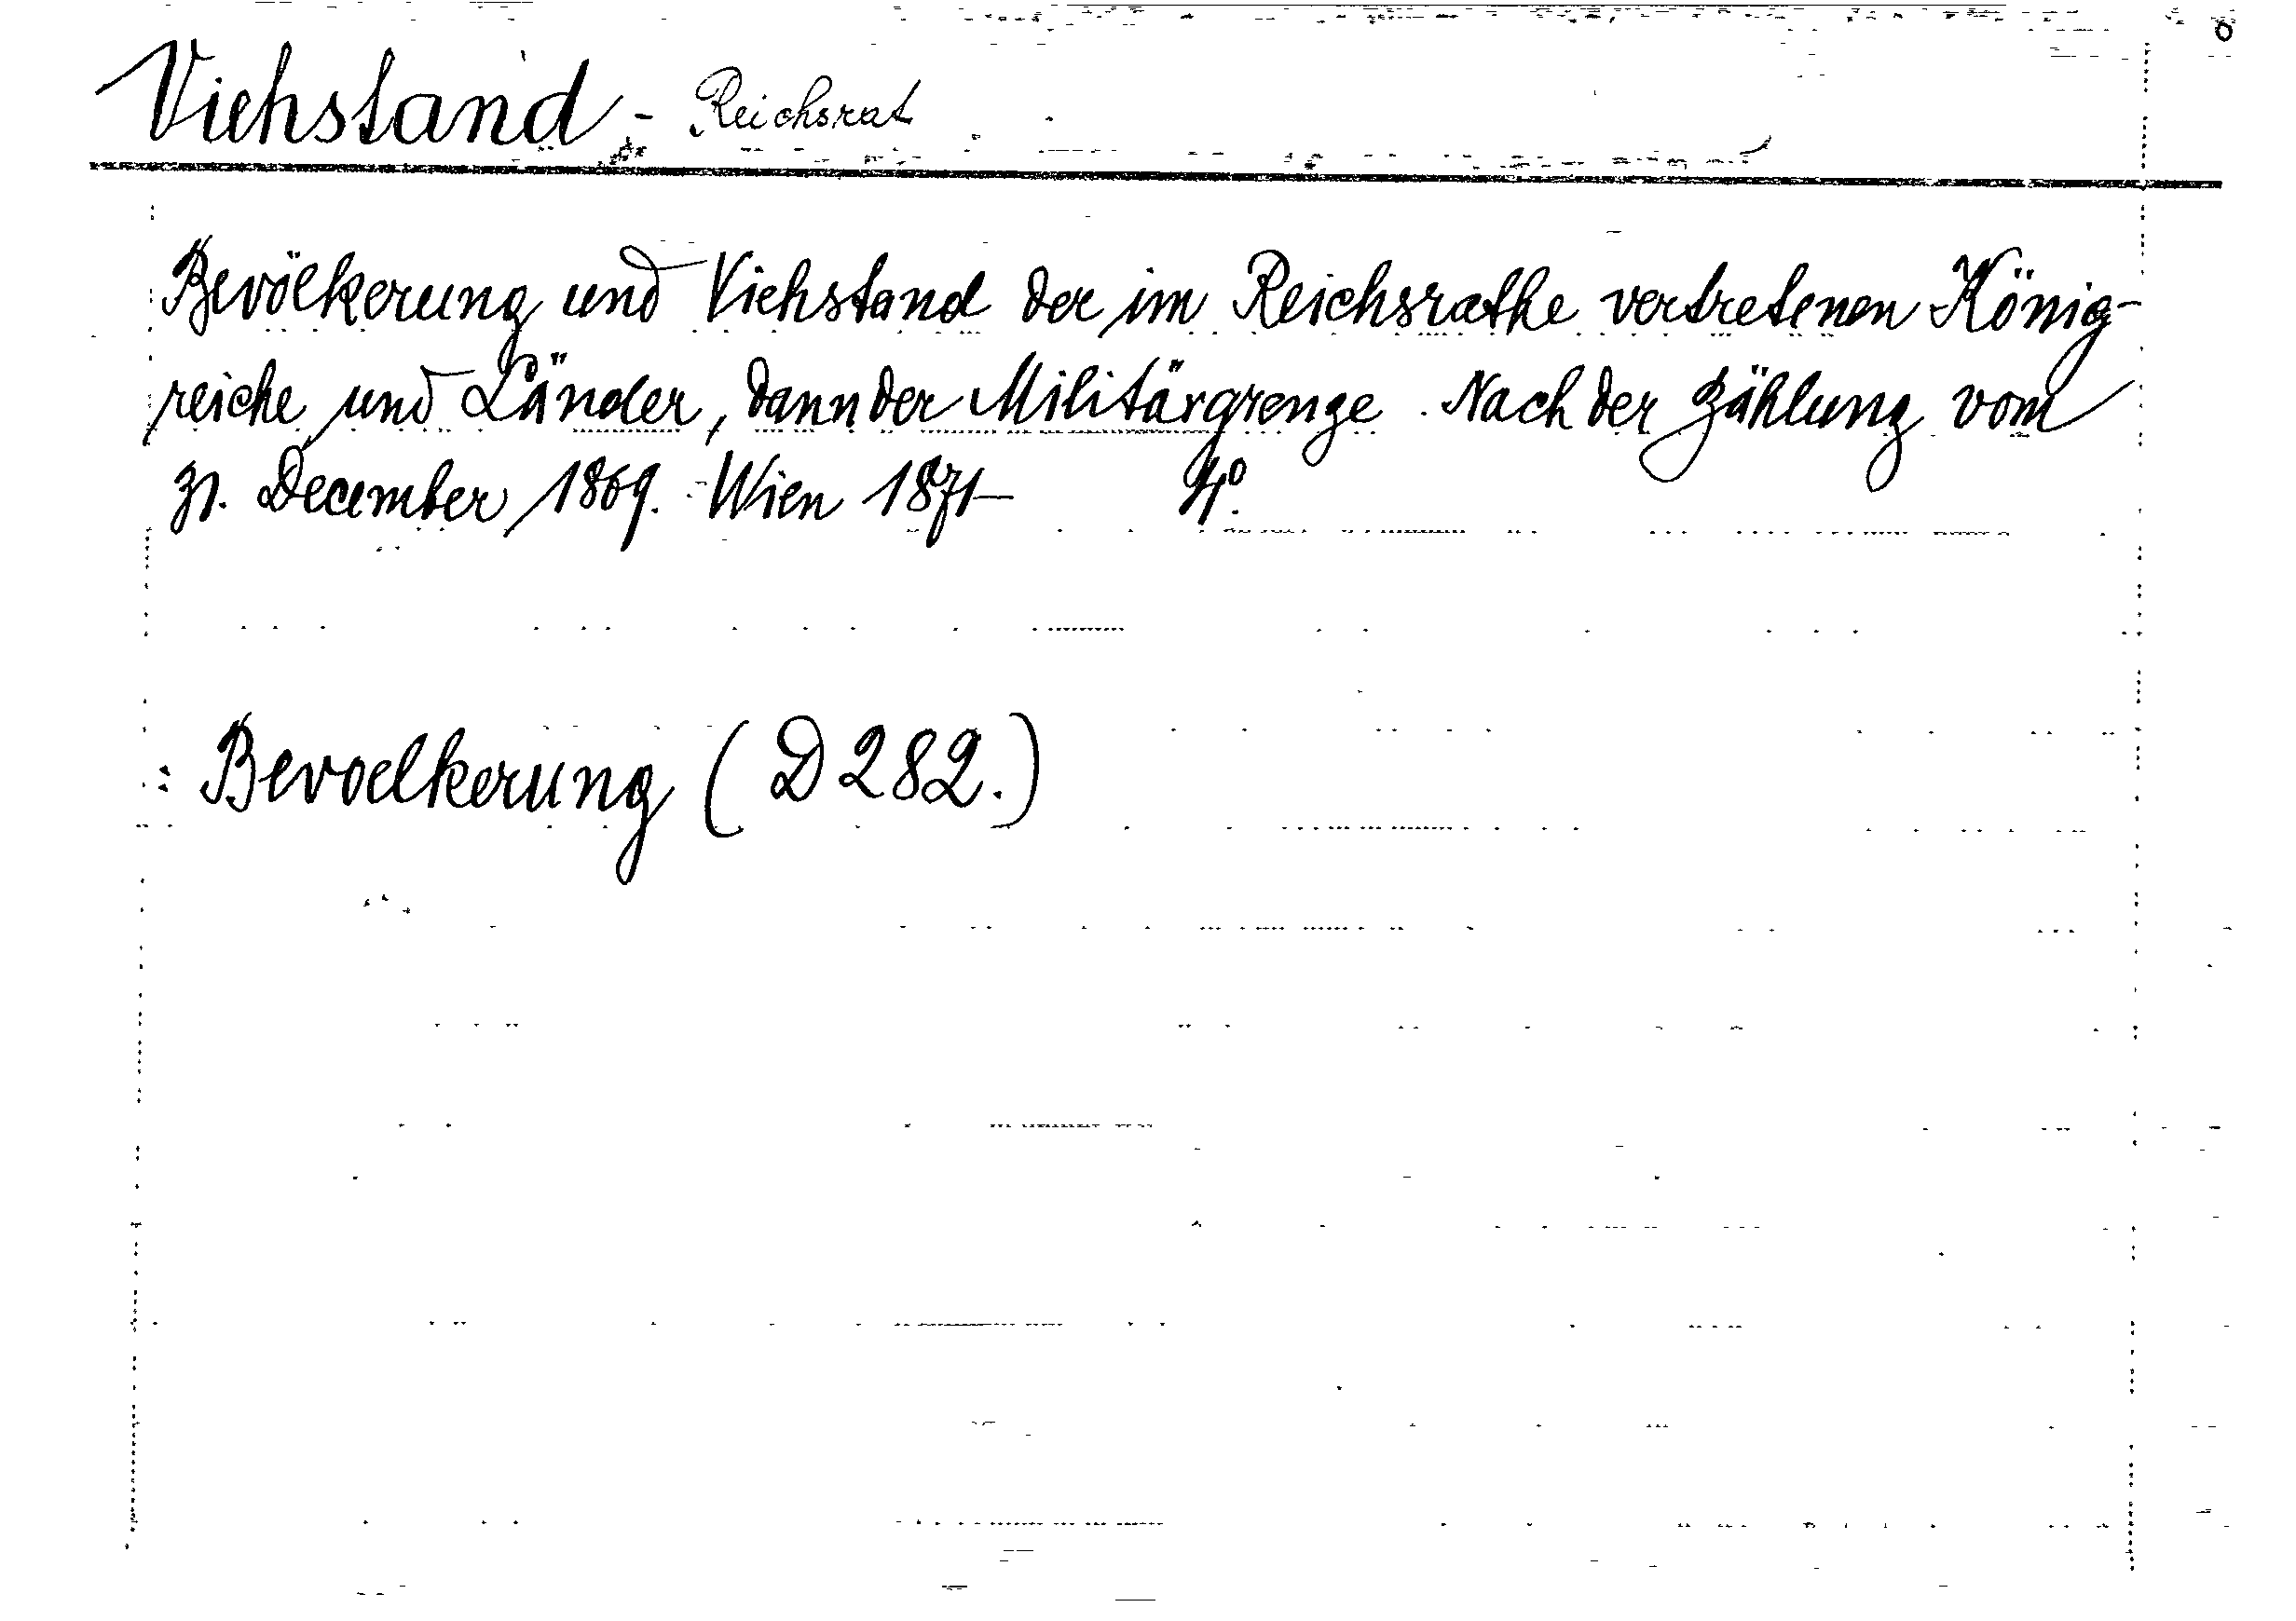 Viehstand - Reichsrat
Bevölkerung und Viehstand der im Reichsrathe vertretenen König-
reiche und Länder, dann der Militärgrenze. Nach der Zählung vom
31. December 1869. - Wien 1871 4°.
: Bevoelkerung (D 282.)